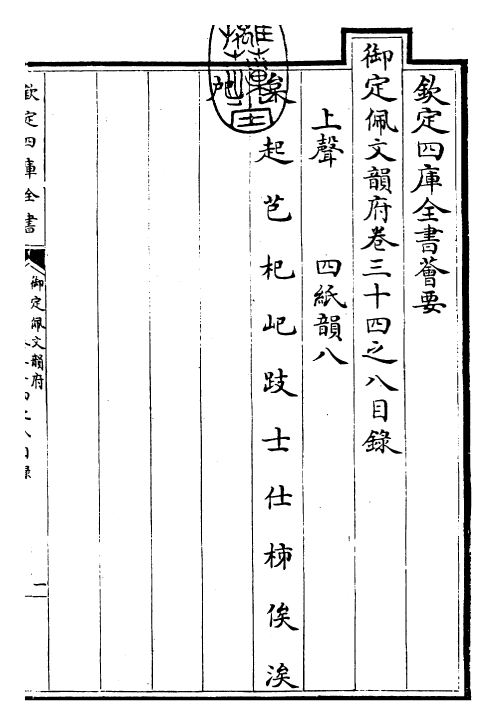 欽定四庫全書薈要
御定佩文韻府卷三十四之八目錄
上聲 四紙韻八
起芑杞屺跂士仕柹俟涘
欽定四庫全書
御定佩文韻府